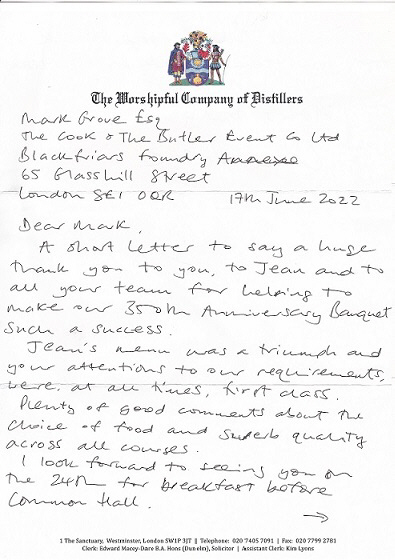 The Worshipful Company of Distillers
Mark Grove Esq
The Cook & The Butler Event Co Ltd
Blackfriars Foundry Annexe
65 Glasshill Street
London SE1 0QR 17th June 2022
Dear Mark,
A short letter to say a huge
thank you to you, to Jean and to
all your team for helping to
make our 350th Anniversary Banquet
such a success.
Jean's menu was a triumph and
your attentions to our requirements,
were, at all times, first class.
Plenty of good comments about the
choice of food and superb quality
across all courses.
I look forward to seeing you on
the 24th for breakfast before
Common Hall.
→
1 The Sanctuary, Westminster, London SW1P 3JT || Telephone: 020 7405 7091 | Fax: 020 7799 2781
Clerk: Edward Macey-Dare B.A. Hons (Dunelm), Solicitor | Assistant Clerk: Kim Lyons